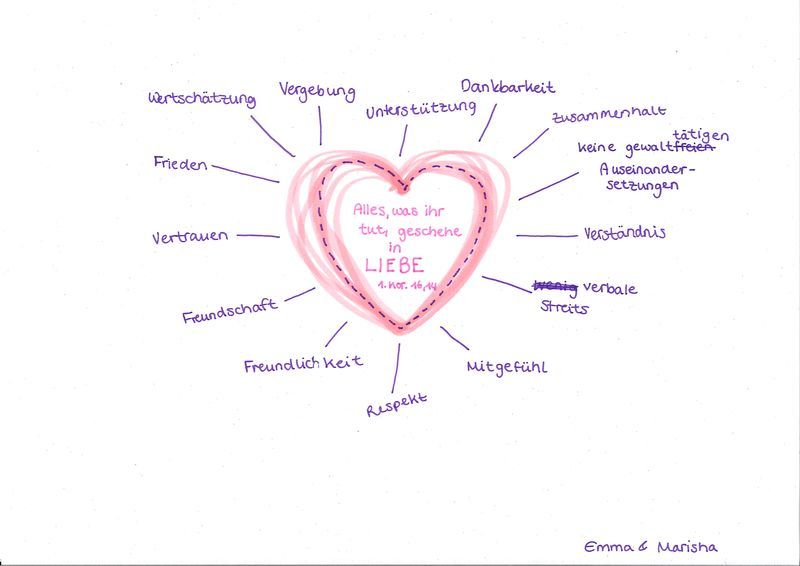 Wertschätzung
Vergebung
Unterstützung
Dankbarkeit
Zusammenhalt
tätigen
keine gewaltfreien
Auseinander-
setzungen
Frieden
Vertrauen
Verständnis
wenig verbale
Streits
Freundschaft
Freundlichkeit
Respekt
Mitgefühl
Alles, was ihr
tut, geschehe
in
LIEBE
1. Kor. 16,14
Emma & Marisha